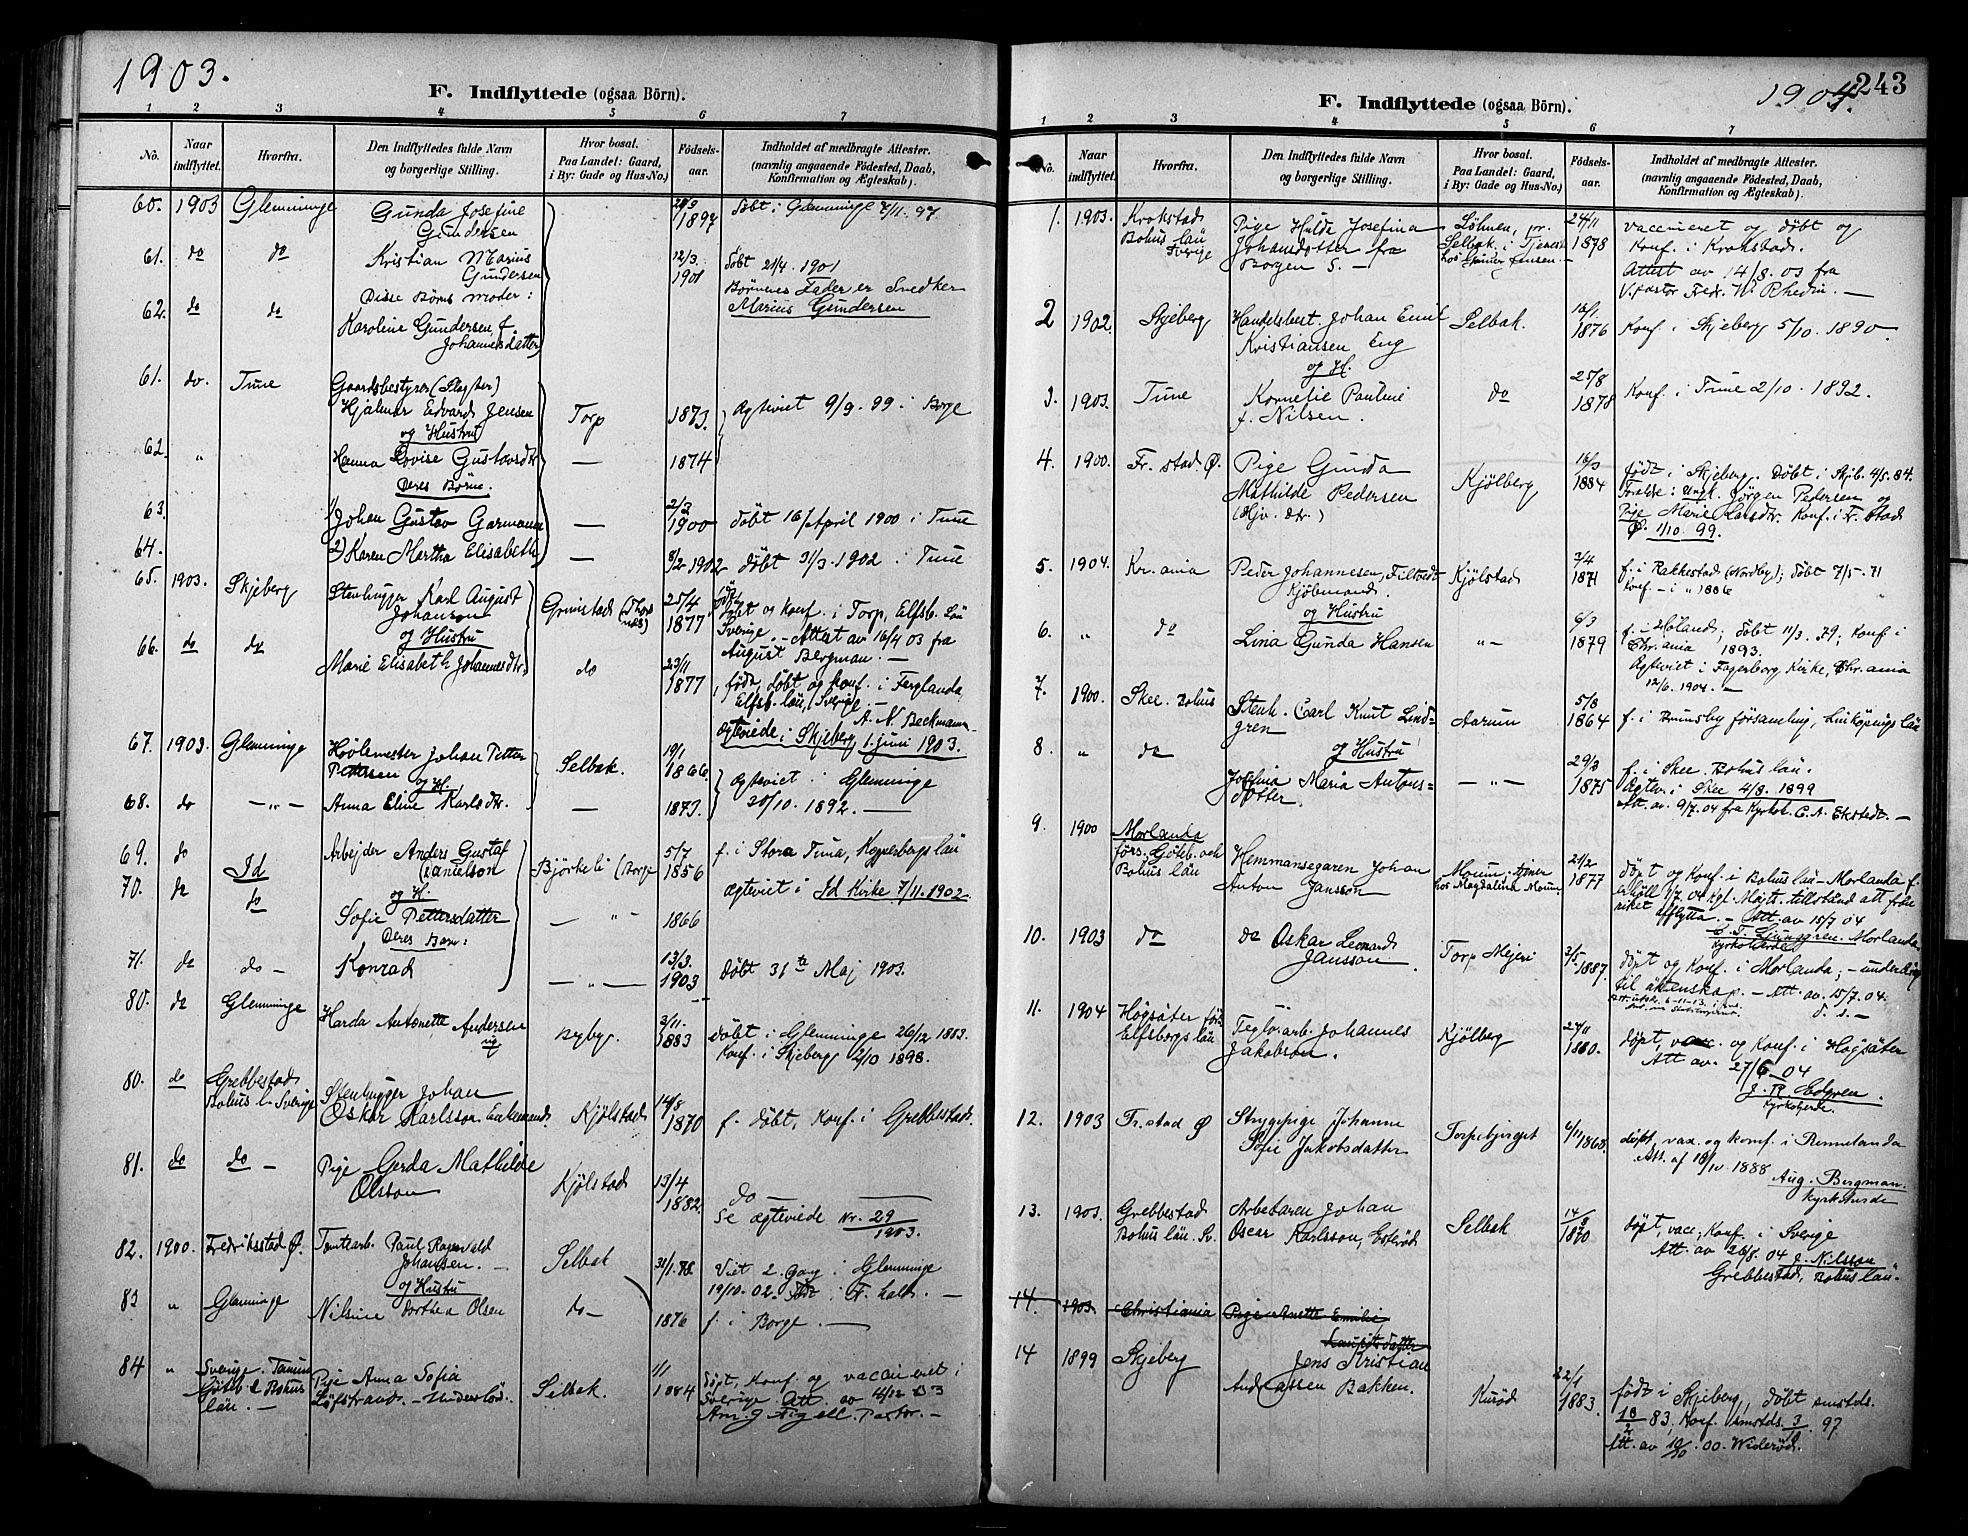 1903.
F. Indflyttede (ogsaa Börn).
1 2 3 4 5 6 7
No. Naar indflyttet. Hvorfra. Den Indflyttedes fulde Navn og borgerlige Stilling. Hvor bosat. Paa Landet: Gaard, i By: Gade og Hus-No. Födsels-aar. Indholdet af medbragte Attester. (navnlig angaaende Födested, Daab, Konfirmation og Ægteskab).
60. 1903 Glemminge Gunda Josefine 20/9 Döbt i Glemminge 7/11. 97.
Gundersen 1897
61. do do Kristian Marius 12/3 Döbt 21/4. 1901
Gundersen 1901 Børnenes Fader er Snedker
62. do do Disse Børns moder: Marius Gundersen
Karoline Gundersen f.
Johannesdatter
61. do. Tune Gaardsbestyrer (Slagter)
Hjalmar Edvard Jensen Torp 1873. Ægteviet 9/9. 99 i Borge
og Hustru
62. " Hanna Lovise Gustavsdtr — 1874
Deres Börn.
63. 1) Johan Gustav Germann — 2/3 1900 döbt 16/April 1900 i Tune
64. 2) Karen Martha Elisabeth — 8/2 1902 døbt 31/3. 1902 i Tune
65. 1903. Skjeberg Stenhugger Karl August Grimstad (Thorsnæs) 25/4 1877 født, døbt og konf. i Torp, Elfsb. Län
Johanson Sverige. — Attest av 16/4 03 fra
og Hustru August Bergman. —
66. do do Marie Elisabeth Johannesdtr. do 23/11 1877 født, døbt og konf. i Ferglanda
Elfsb. län, (Sverige. —
A. N. Beckmann
ægteviede i Skjeberg 1. juni 1903.
67. 1903. Glemminge Høvlemester Johan Petter Selbak. 19/1 1866 Ægteviet i Glemminge
Pettersen og H.
68. do — " — Anna Eline Karlsdtr. — 1873. 20/10. 1892. —
69. do Id Arbejder Anders Gustaf Björkeli (Borge 5/7 1856 f. i Stora Tuna, Kopperbergs län
Danielson
70. do do og H. ægteviet i Id Kirke 7/11. 1902.
Sofie Pettersdatter — " — 1866
Deres Barn:
71. do do — Konrad — " — 13/3. 1903 døbt 31te Maj 1903.
80. do Glemminge Harda Antonette Andersen Nybyg. 3/11. 1883 døbt i Glemminge 26/12 1883.
ug Konf. i Skjeberg 2/10 1898.
80. do Grebbestad Stenhugger Johan
Bohus l. Sverige Oskar Karlsson, Enkemand Kjölstad 14/8 1870 f. døbt, konf. i Grebbestad.
81. do do — Pige Gerda Mathilde Kjölstad 13/4 1882. do —
Olsson Se ægteviede Nr. 29
1903.
82. 1900. Fredriksstad Ø. Tomtearb. Paul Ragnvald Selbak 31/1. 78 Viet 2. Gang i Glemminge
Johansen. — 19/10. 02. Født i Fr. hald. —
og Hustru
83 " Glemminge Nilsine Dorthea Olsen do — 1876 f. i Borge. —
84 " Sverige. Tanum Pige Anna Sofia Selbak. 1/1 1884 Döpt, konf. og vaccineret i
Göteb. & Bohus Löfstrand. — Sverige Att. av
län. — Pastor. —
243
1904.
F. Indflyttede (ogsaa Börn).
1 2 3 4 5 6 7
No. Naar indflyttet. Hvorfra. Den Indflyttedes fulde Navn og borgerlige Stilling. Hvor bosat. Paa Landet: Gaard, i By: Gade og Hus-No. Födsels-aar. Indholdet af medbragte Attester. (navnlig angaaende Födested, Daab, Konfirmation og Ægteskab).
1. 1903. Krokstad Pige Hulda Josefina Löhnen, pr. 24/11 vaccineret og döbt og
Bohus län Johansdotter fra Selbak. i Tjenest 1878 Konf. i Krokstad.
Sverige Borgen S. — hos Guner Jensen — Attest av 14/8. 03 fra
V. pastor Fredr. W. Rhedin. —
2 1902. Skjeberg Handelsbest. Johan Emil Selbak. 16/1. 1876 Konf. i Skjeberg 5/10. 1890.
Kristiansen Eng
og H.
3. 1903. Tune Kornelie Pauline do 25/8 1878 Konf. i Tune 2/10. 1892.
f. Nilsen.
4. 1900. Fr. stad Ø. Pige Gunda Kjölberg 16/3 1884 født i Skjeberg. Döbt i Skjb. 4/5. 84.
Mathilde Pedersen Foreldre: Ungk. Jörgen Pedersen og
(Hjv. dtr.) Pige Marie Larsdtr. Konf. i Fr. stad
Ø. 1/10. 99.
5. 1904. Kr. ania Peder Johannesen, Filtvedt Kjölstad 3/4 1871 f. i Rakkestad (Nordby); döbt 7/5. 71
Kjöbmand. Konf. — i " 1886
og Hustru
6. " do Lina Gunda Hansen " — 6/3 1879 f. i Höland; døbt 11/3. 79; konf i
Chr. ania 1893.
Ægteviet i Fagerborg Kirke, Chr. ania
12/6. 1904. —
7. 1900. Skee. Bohus Stenh. Carl Knut Lindgren Aarum 5/8 1864 f. i Brunsby församling, Linköpings län
8. " do og Hustru
Josefina Maria Antonsdotter. — " — 29/3 1875 f. i Skee. Bohus län.
Ægtev. i Skee 4/3. 1899
Att. av. 9/7. 04 fra Kyrkoh. C. A. Ekstedt. —
9. 1900 Morlanda
förs. Göteb. och Hemmansegaren Johan Moum, tjener 21/2 döpt og konf. i Bohus län — Morlanda f.
Bohus län Anton Jansson. hos Magdalina Moum 1877 Erhöll 1/7. 04 Kgl. Majts. tillstånd att från
riket afflytta. — Att. av 15/7 04
C. T. Ljunggren. Morlanda.
Kyrkoherde
10. 1903 do do Oskar Leonard Torp Mejeri 2/5 1887. döpt og konf. i Morlanda; — underårig
Jansson. til äktenskap. — Att. av. 15/7. 04.
d. s. —
11. 1904 Högsäter förs. Teglv. arb. Johannes Kjölberg 24/11 1880. döpt, vacc. og konf. i Högsäter
Elfsborgs län Jakobson. Att. av. 27/6 — 04
J. R. Edgren.
Kyrkoherde.
12. 1903 Fr. stad Ø Strygepige Johanne Torpebjerget 6/11 1868. döpt, vax. og konf. i Rennelanda
Sofie Jakobsdatter Att. af 10/10. 1888
Aug. Bergman.
Kyrkoherde
13. 1903. Grebbestad Arbetaren Johan Selbak 14/8 1870 döpt, vacc., konf. i Sverige
Bohus län. Sv. Oscar Karlsson, Esteröd Att. av 26/8. 04 J. Nilsson
Grebbestad, Bohus län.
14. 1903. Christiania Pige Anette Emilie
Lauritsdatter
14 1899 Skjeberg Jens Kristian
Andreassen Bakken. Kuröd 22/1 1883. født i Skjeberg, døbt smstds.
18/2 83, Konf. smstds. 3/ 97
Att. av 10/10. 00. Wideröd.